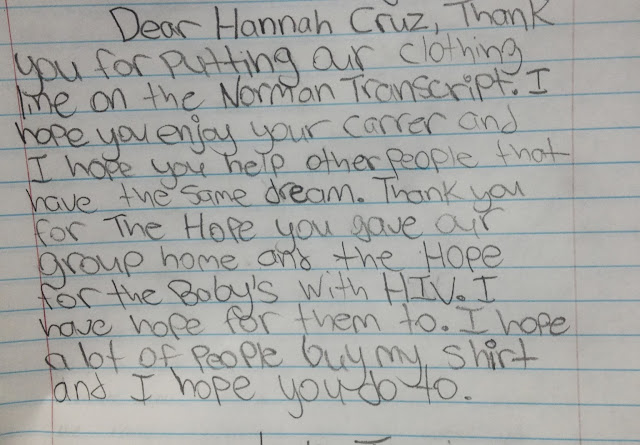 Dear Hannah Cruz, Thank
you for putting our clothing
line on the Norman Transcript. I
hope you enjoy your carrer and
I hope you help other people that
have the same dream. Thank you
for The Hope you gave our
group home and the Hope
for the Baby's with HIV. I
have hope for them to. I hope
a lot of People buy my shirt
and I hope you do to.